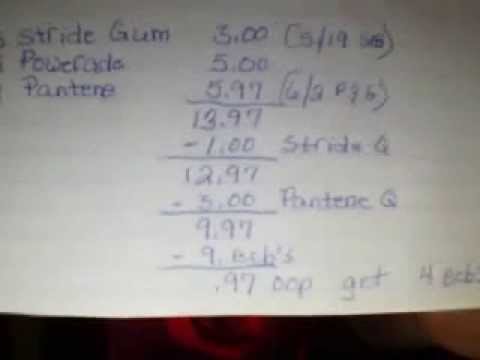 Stride Gum 3.00 (5/19 SS)
Powerade 5.00
Pantene 5.97 (6/2 P&G)
13.97
- 1.00 Stride Q
12.97
- 3.00 Pantene Q
9.97
- 9. Ecb's
.97 oop get 4 Ecb's